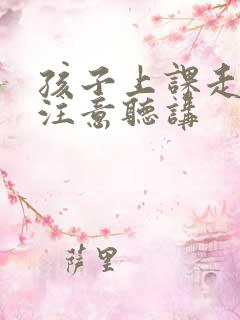 孩子上課走
注意聽講
薩里